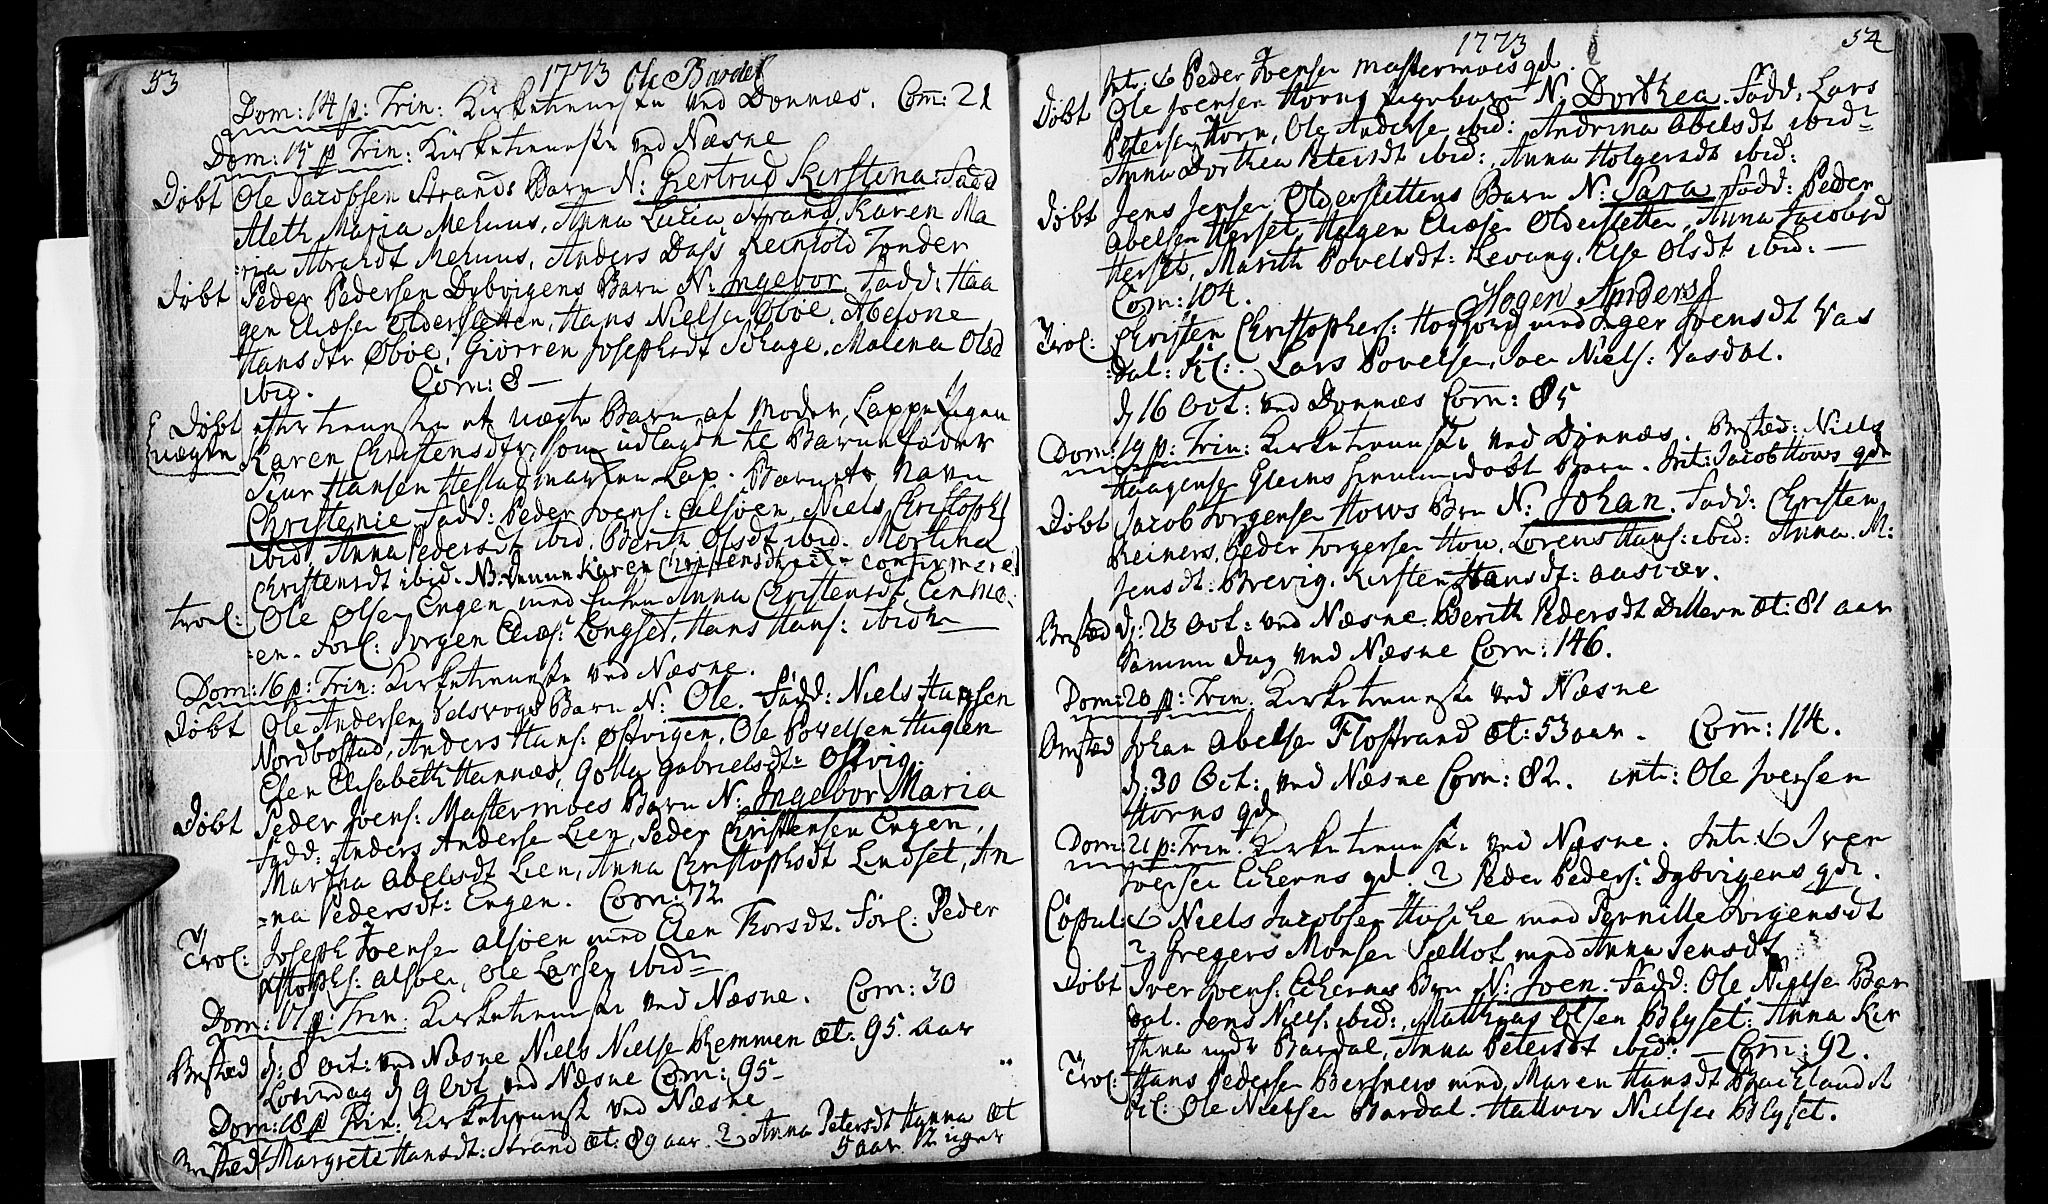 53
1773 Ole Bardel
Dom: 14 p: Trin: Kirketienneste ved Dønnæs. Com: 21
Dom: 15 p Trin: Kirketienneste ved Næsne
Døbt Ole Jacobsen Strands Barn N: Giertrud Kirstina. Fadd
Aleth Maria Mehuus, Anna Lucia Strand, Karen Ma
:ria Abrahdt Mehuus, Anders Dass Reinhold Zonder
Døbt Peder Pedersen Dybvigens Barn N: Ingebor. Fadd: Haa
gen Eliæsen Oldersletten, Hans Nielsen Øbøe, Abelone
Hansdtr Øbøe, Giørren Josephsdt Schage, Malena Olsd
ibid. Com: 8 —
Døbt efter tiennesten et uægte Barn af Moder, Lappe Pigen
uægte Karen Christensdtr, som udlagde til Barnefader
Siur Hansen Hestadmarken Lap. Barnets Navn
Christenie Fadd: Peder Ivens: Alsøen, Niels Christophs
ibid, Anna Pedersdt ibid. Berith Olsdt ibid. Mortina
Christensdt ibid. NB. denne Karen Christensdt er confirmeret
Trol: Ole Olsen Engen med Enken Anna Christensdt Lenmo:
:en. Forl: Jørgen Elias: Longset, Hans Hans: ibidm
Dom: 16 p: Trin: Kirketienneste ved Næsne.
Døbt Ole Andersen Barn N: Ole. Fadd: Niels Hansen
Nordbostad, Anders Hans: Østvigen, Ole Povelsen Huglen
Elen Elisabeth Hannæs, Golla Gabrielsdt: Østvig.
Døbt Peder Ivens: Mastermoes Barn N: Ingebor Maria
Fadd: Anders Andersen Lien, Peder Christensen Engen,
Martha Abelsdt Lien, Anna Christophsdt Lindset, An
:na Pedersdt: Engen. Com: 72
Trol: Joseph Ivensen Alsøen med Elen Thorsdt. Forl: Peder
Alsøen, Ole Larsen ibidm
Dom: 17 p: Trin: Kirketienneste ved Næsne. Com: 30
Begravd d: 8 Oct: ved Næsne Niels Nielsen Remmen æt: 95 aar
Løverdag d 9 Oct ved Næsne Com: 95
Dom: 18 p Trin: Kirketienneste ved Næsne
Margrete Hansdt: Strand æt: 89 aar. 2 Anna Petersdt Hanna æt
5 aar 12 uger
1773 54
Intr: 1 Peder Ivensen Mastermoes qd.
Døbt Ole Joensen Horns Barn N. Dorthea. Fadd: Lars
Petersen Horn, Ole Andersen ibid: Andrina Abelsdt ibidm
Anna Dorthea Petersdt ibid:, Anna Holgersdt ibid:
Døbt Jens Jensen Olderslettens Barn N: Sara Fadd: Peder
Abelsen Herset, Hagen Eliæsen Oldersletten, Anna Jacobsd
Herset, Marith Povelsdt: Levang, Else Olsdt ibid: —
Com: 104. Hogen Anders
Trol: Christen Christophers: Hogjord med Inger Ivensdt Vas
:dal: Fl: Lars Povelsen, Iver Niels: Vasdal.
d 16 Oct: ved Dønnæs Com: 85
Dom: 19 p: Trin: Kirketienneste ved Dønnæs. Niels
Haagensen Gleins hiemmedøbt Barn. Int: Jacob Hows qde
Døbt Jacob Jørgensen Hows Brn N: Johan. Fadd: Christen
Reiners, Peder Jørgersen How, Lorens Hans: ibid: Anna M:
Jensdt: Brevig. Kirsten Hansdt: Aasvær.
d: 23 Oct: ved Næsne. Berith Pedersdt Dillern æt: 81 aar
Samme dag ved Næsne Com: 146.
Dom: 20 p: Trin. Kirketienneste ved Næsne
Johan Abelsen Flostrand æt: 53 aar. Com: 114.
d. 30 Oct: ved Næsne Com: 82. intr: Ole Ivensen
Horns qd
Dom: 21 p: Trin. Kirketienneste ved Næsne. Intr: 1 Iver
Ivensen Ekerns qd. 2 Peder Peders: Dybvigens qde.
Copul: 1 Niels Jacobsen Husbye med Pernille Jørgensdt
2 Gregers Monsen Sællot med Anna Jensdt
Døbt Iver Ivens: Ekernes Brn N: Iven. Fadd: Ole Nielsen Bar
dal. Jens Niels: ibid:, Matthias Olsen Blyset: Anna Kir
stina Bardal, Anna Petersdt ibid: — Com: 92.
Trol: Hans Pedersen med Maren Hansdt Baklandet
Fl: Ole Nielsen Bardal. Halvor Nielsen Blyset.